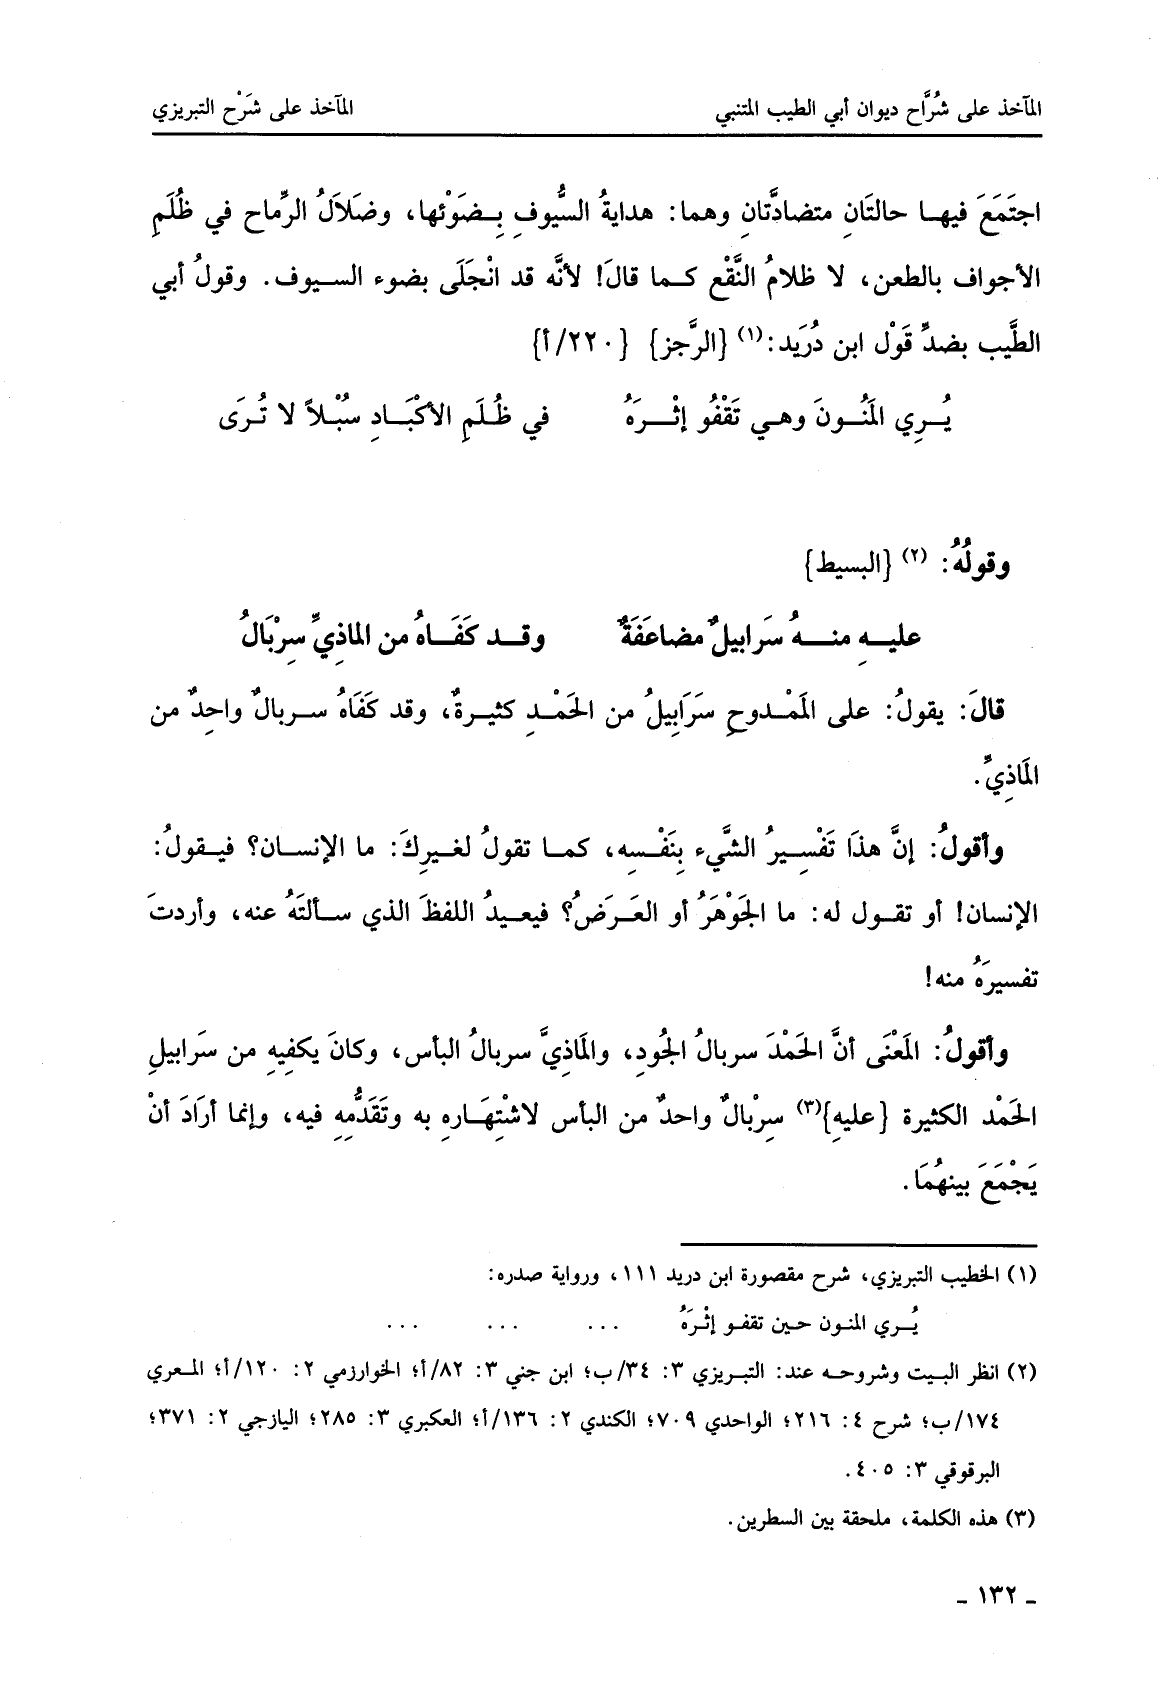 المآخذ على شُرَّاح ديوان أبي الطيب المتنبي المآخذ على شَرْح التبريزي
اجتَمَعَ فيهـا حالتَانِ متضادَّتانِ وهما: هدايةُ السُّيوفِ بِـضَوْئها، وضَلاَلُ الرِّماح في ظُلَمِ
الأجواف بالطعن، لا ظلامُ النَّقْع كـما قالَ! لأنَّه قد انْجَلَى بضوء السـيوف. وقولُ أبي
الطَّيب بضدِّ قَوْل ابن دُرَيد:(١) {الرَّجز} {٢٢٠/أ}
يُـري المَنُـونَ وهـي تَقْفُو إثْـرَهُ في ظُلَمِ الأكْبَـادِ سُبْلاً لا تُـرَى
وقولُهُ: (٢) {البسيط}
عليـهِ منـهُ سَرابيلٌ مضاعَفَةٌ وقـد كَفَـاهُ من الماذِيِّ سِرْبَالُ
قالَ: يقولُ: على المَمْـدوحِ سَرَابِيلُ من الحَمْـدِ كثيـرةٌ، وقد كَفَاهُ سـربالٌ واحِدٌ من
المَاذِيِّ.
وأقولُ: إنَّ هذَا تَفْسِـيرُ الشَّيء بِنَفْـسِه، كمـا تقولُ لغيرِكَ: ما الإنسـان؟ فيـقولُ:
الإنسان! أو تقـول له: ما الجَوْهَرُ أو العَـرَضُ؟ فيعـيدُ اللفظَ الذي سـألتَهُ عنه، وأردتَ
تفسيرَهُ منه!
وأقولُ: المَعْنَى أنَّ الحَمْدَ سربالُ الجُودِ، والمَاذِيَّ سربالُ البأس، وكانَ يكفِيهِ من سَرابيلِ
الحَمْد الكثيرة {عليهِ}(٣) سِرْبالٌ واحدٌ من البأس لاشْتِهَـارِهِ به وتَقَدُّمِهِ فيه، وإنما أرَادَ أنْ
يَجْمَعَ بينهُمَا.
(١) الخطيب التبريزي، شرح مقصورة ابن دريد ١١١، ورواية صدره:
يُـري المنـون حـين تقفـو إثْـرَهُ ... ... ...
(٢) انظر البـيت وشروحـه عند: التبـريزي ٣: ٣٤/ب؛ ابن جني ٣: ٨٢/أ؛ الخوارزمي ٢: ١٢٠/أ؛ المعري
١٧٤/ب؛ شرح ٤: ٢١٦؛ الواحدي ٧٠٩؛ الكندي ٢: ١٣٦/أ؛ العكبري ٣: ٢٨٥؛ اليازجي ٢: ٣٧١؛
البرقوقي ٣: ٤٠٥.
(٣) هذه الكلمة، ملحقة بين السطرين.
ـ ١٣٢ ـ